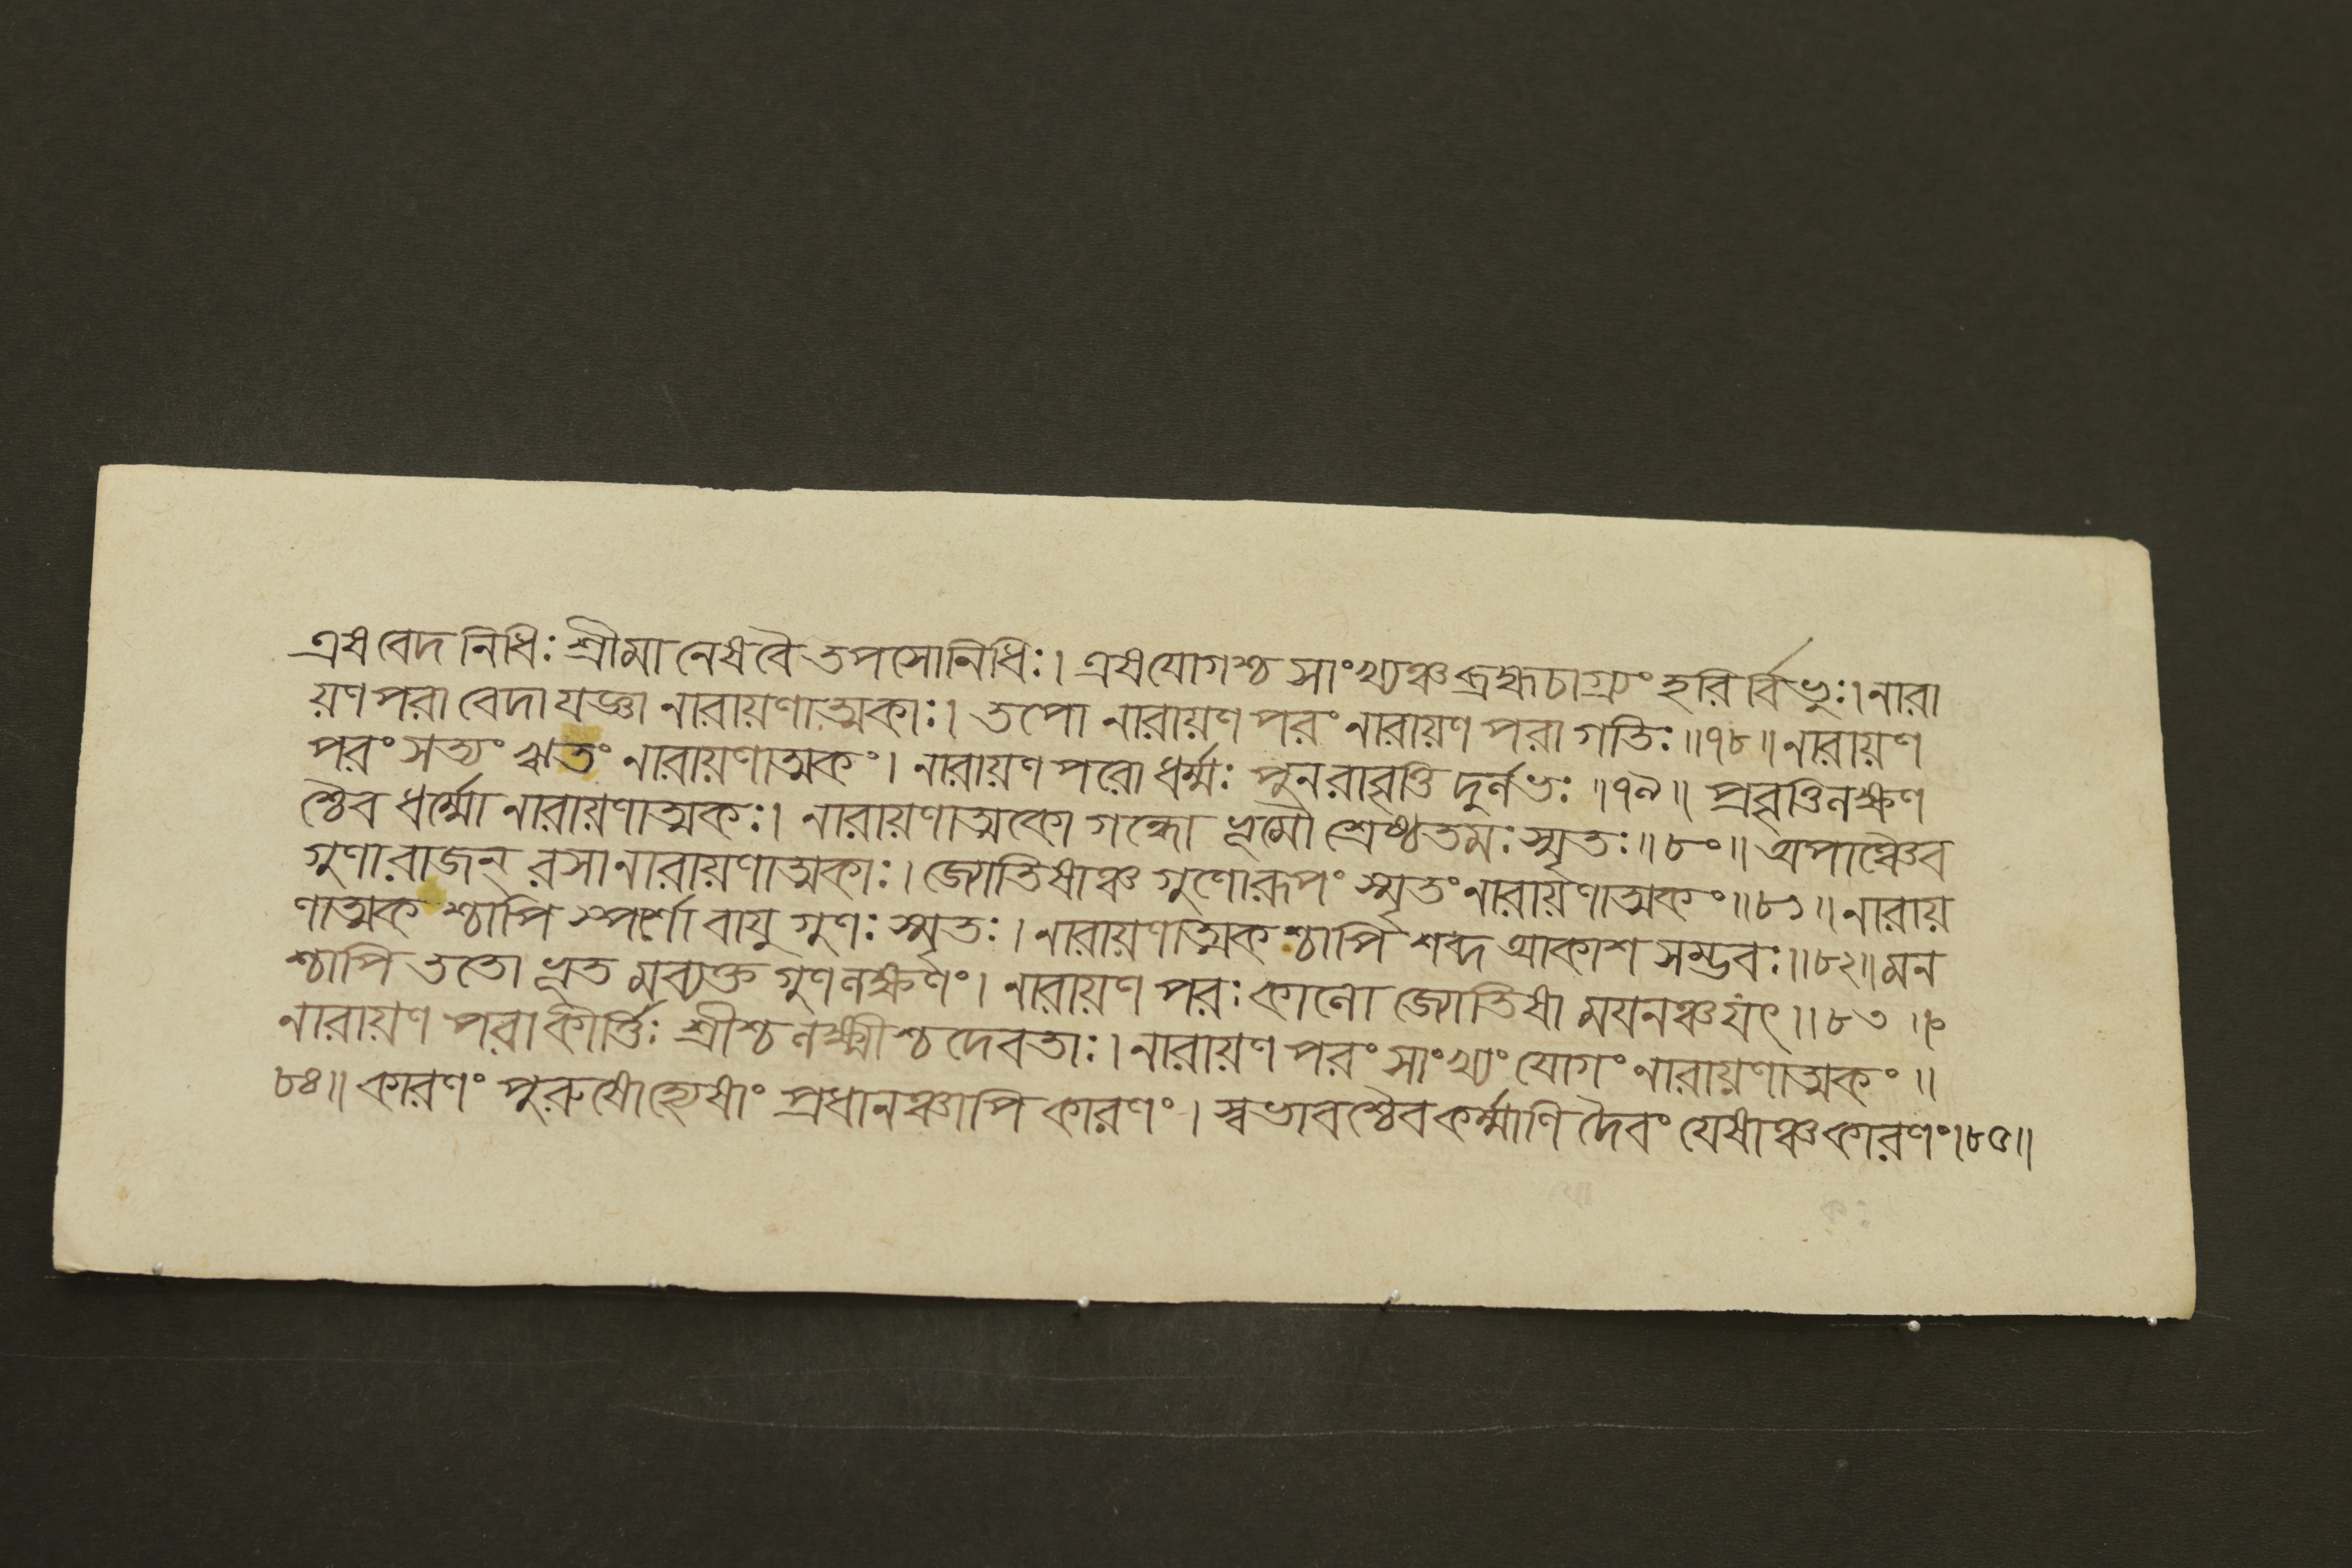 এষবেদ নিধিঃ শ্রীমা নেষবৈ তপসোনিধিঃ। এষযোগশ্চ সাংখ্যঞ্চ ব্রহ্মচাগ্র্যং হরি র্বিভুঃ। নারা
য়ণ পরা বেদা যজ্ঞা নারায়ণাত্মকাঃ। তপো নারায়ণ পরং নারায়ণ পরা গতিঃ॥৭৮॥ নারায়ণ
পরং সত্যং ঋতং নারায়ণাত্মকং। নারায়ণ পরো ধর্ম্মঃ পুনরাবৃত্তি দুর্লভঃ॥৭৯॥ প্রবৃত্তিলক্ষণ
শ্চৈব ধর্ম্মো নারায়ণাত্মকঃ। নারায়ণাত্মকো গন্ধো ভূমৌ শ্রেষ্ঠতমঃ স্মৃতঃ॥৮০॥ অপাঞ্চৈব
গুণা রাজন্ রসা নারায়ণাত্মকাঃ। জ্যোতিষাঞ্চ গুণোরূপং স্মৃতং নারায়ণাত্মকং॥৮১॥ নারায়
ণাত্মক শ্চাপি স্পর্শো বায়ু গুণঃ স্মৃতঃ। নারায়ণাত্মক শ্চাপি শব্দ আকাশ সম্ভবঃ॥৮২॥ মন
শ্চাপি ততো ভূত মব্যক্ত গুণলক্ষণং। নারায়ণ পরঃ কালো জ্যোতিষা ময়নঞ্চ যৎ॥৮৩॥
নারায়ণ পরা কীর্ত্তিঃ শ্রীশ্চ লক্ষ্মীশ্চ দেবতাঃ। নারায়ণ পরং সাংখ্যং যোগং নারায়ণাত্মকং॥
৮৪॥ কারণং পুরুষোহ্যেষাং প্রধানঞ্চাপি কারণং। স্বভাবশ্চৈব কর্ম্মাণি দৈবং যেষাঞ্চ কারণং।৮৫॥